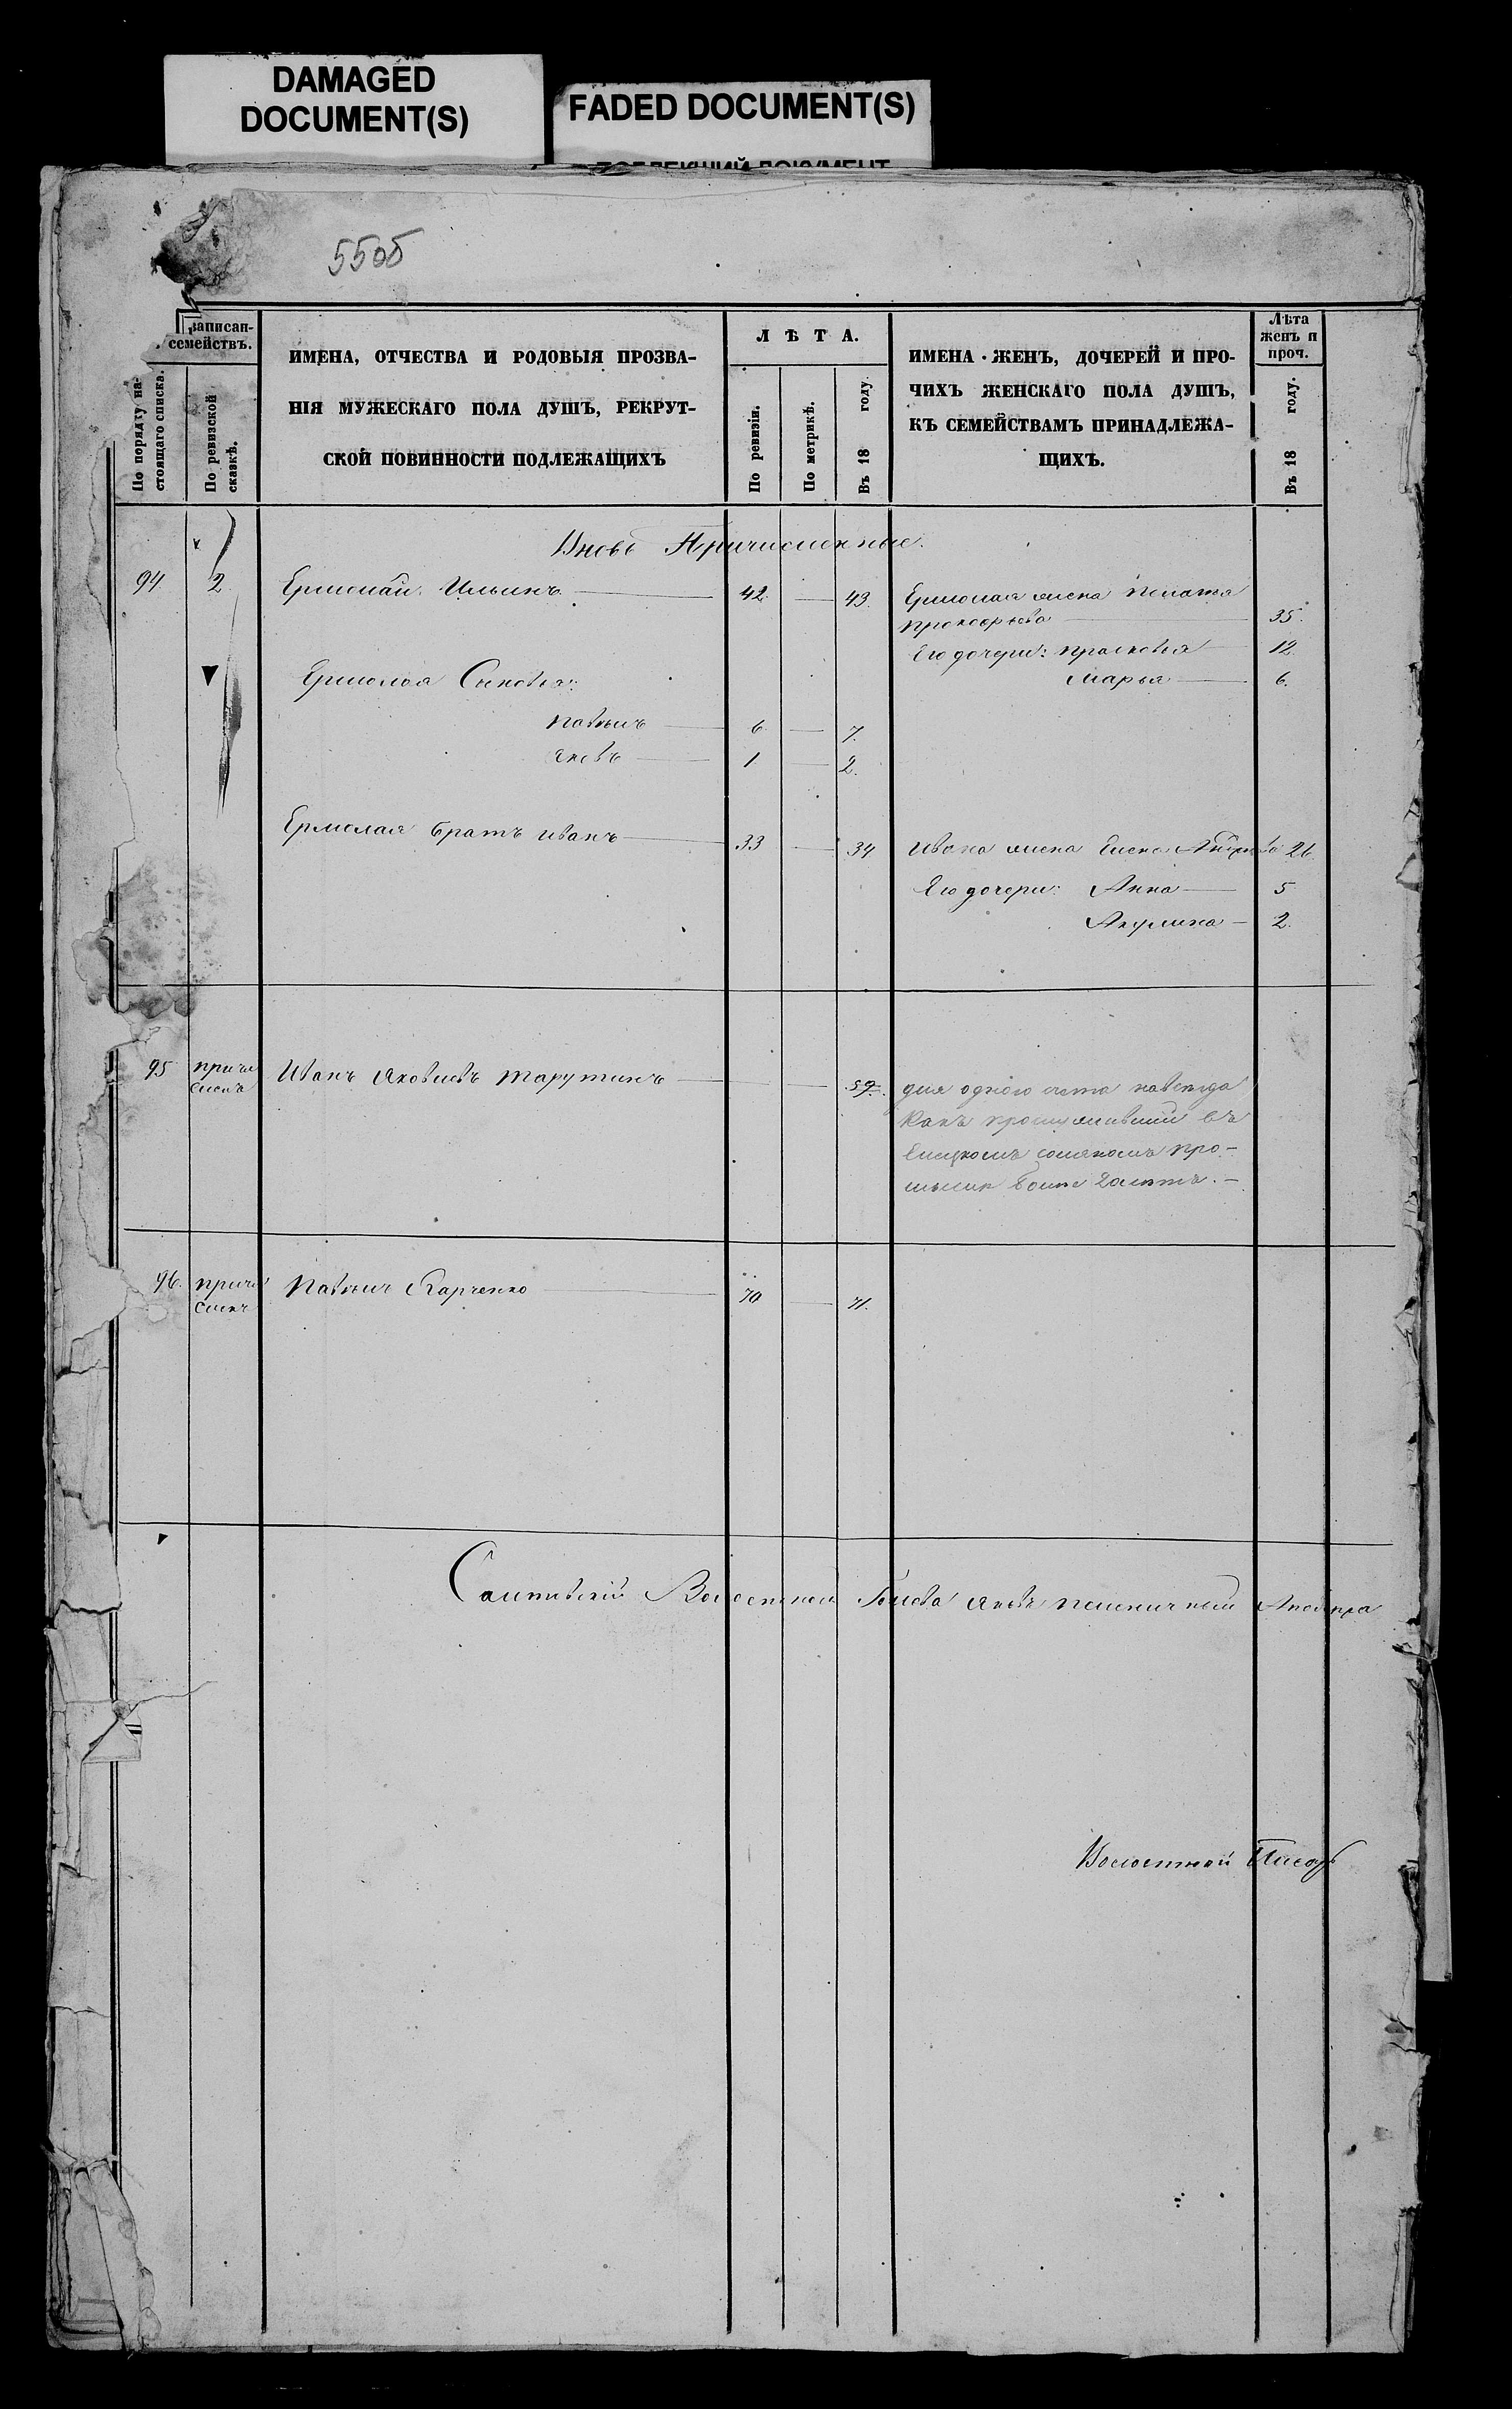 DAMAGED
DOCUMENT(S)
FADED DOCUMENT(S)
55об
записан-
семействъ.
По порядку на-
стоящаго списка.
По ревизской
сказкѣ.
ИМЕНА, ОТЧЕСТВА И РОДОВЫЯ ПРОЗВА-
НІЯ МУЖЕСКАГО ПОЛА ДУШЪ, РЕКРУТ-
СКОЙ ПОВИННОСТИ ПОДЛЕЖАЩИХЪ
ЛѢТА.
По ревизіи.
По метрикѣ.
Въ 18 году.
ИМЕНА ЖЕНЪ, ДОЧЕРЕЙ И ПРО-
ЧИХЪ ЖЕНСКАГО ПОЛА ДУШЪ,
КЪ СЕМЕЙСТВАМЪ ПРИНАДЛЕЖА-
ЩИХЪ.
Лѣта
женъ и
проч.
Въ 18 году.
Вновь Причисленные.
94. 2 Ермолай Ильинъ 42. 43. Ермолая жена Пелагея
Прокофьева 35.
Его дочери: Прасковья 12
Марья 6.
Ермолая Сыновья:
Павелъ 6 7.
Яковъ 1 2.
Ермолая братъ Иванъ 33 34 Ивана жена Елена 26.
Его дочери: Анна 5
Акулина 2.
95 причи
сленъ Иванъ Яковлевъ Тарутинъ 59. для одного счета навсегда
какъ прослужившій въ
Елецкомъ соляномъ про-
мыслѣ болѣе 20 лѣтъ.
96. причи
сленъ Павелъ Харченко 70 71.
Волостной Голова Яковъ Пшеничный
Волостной Писарь